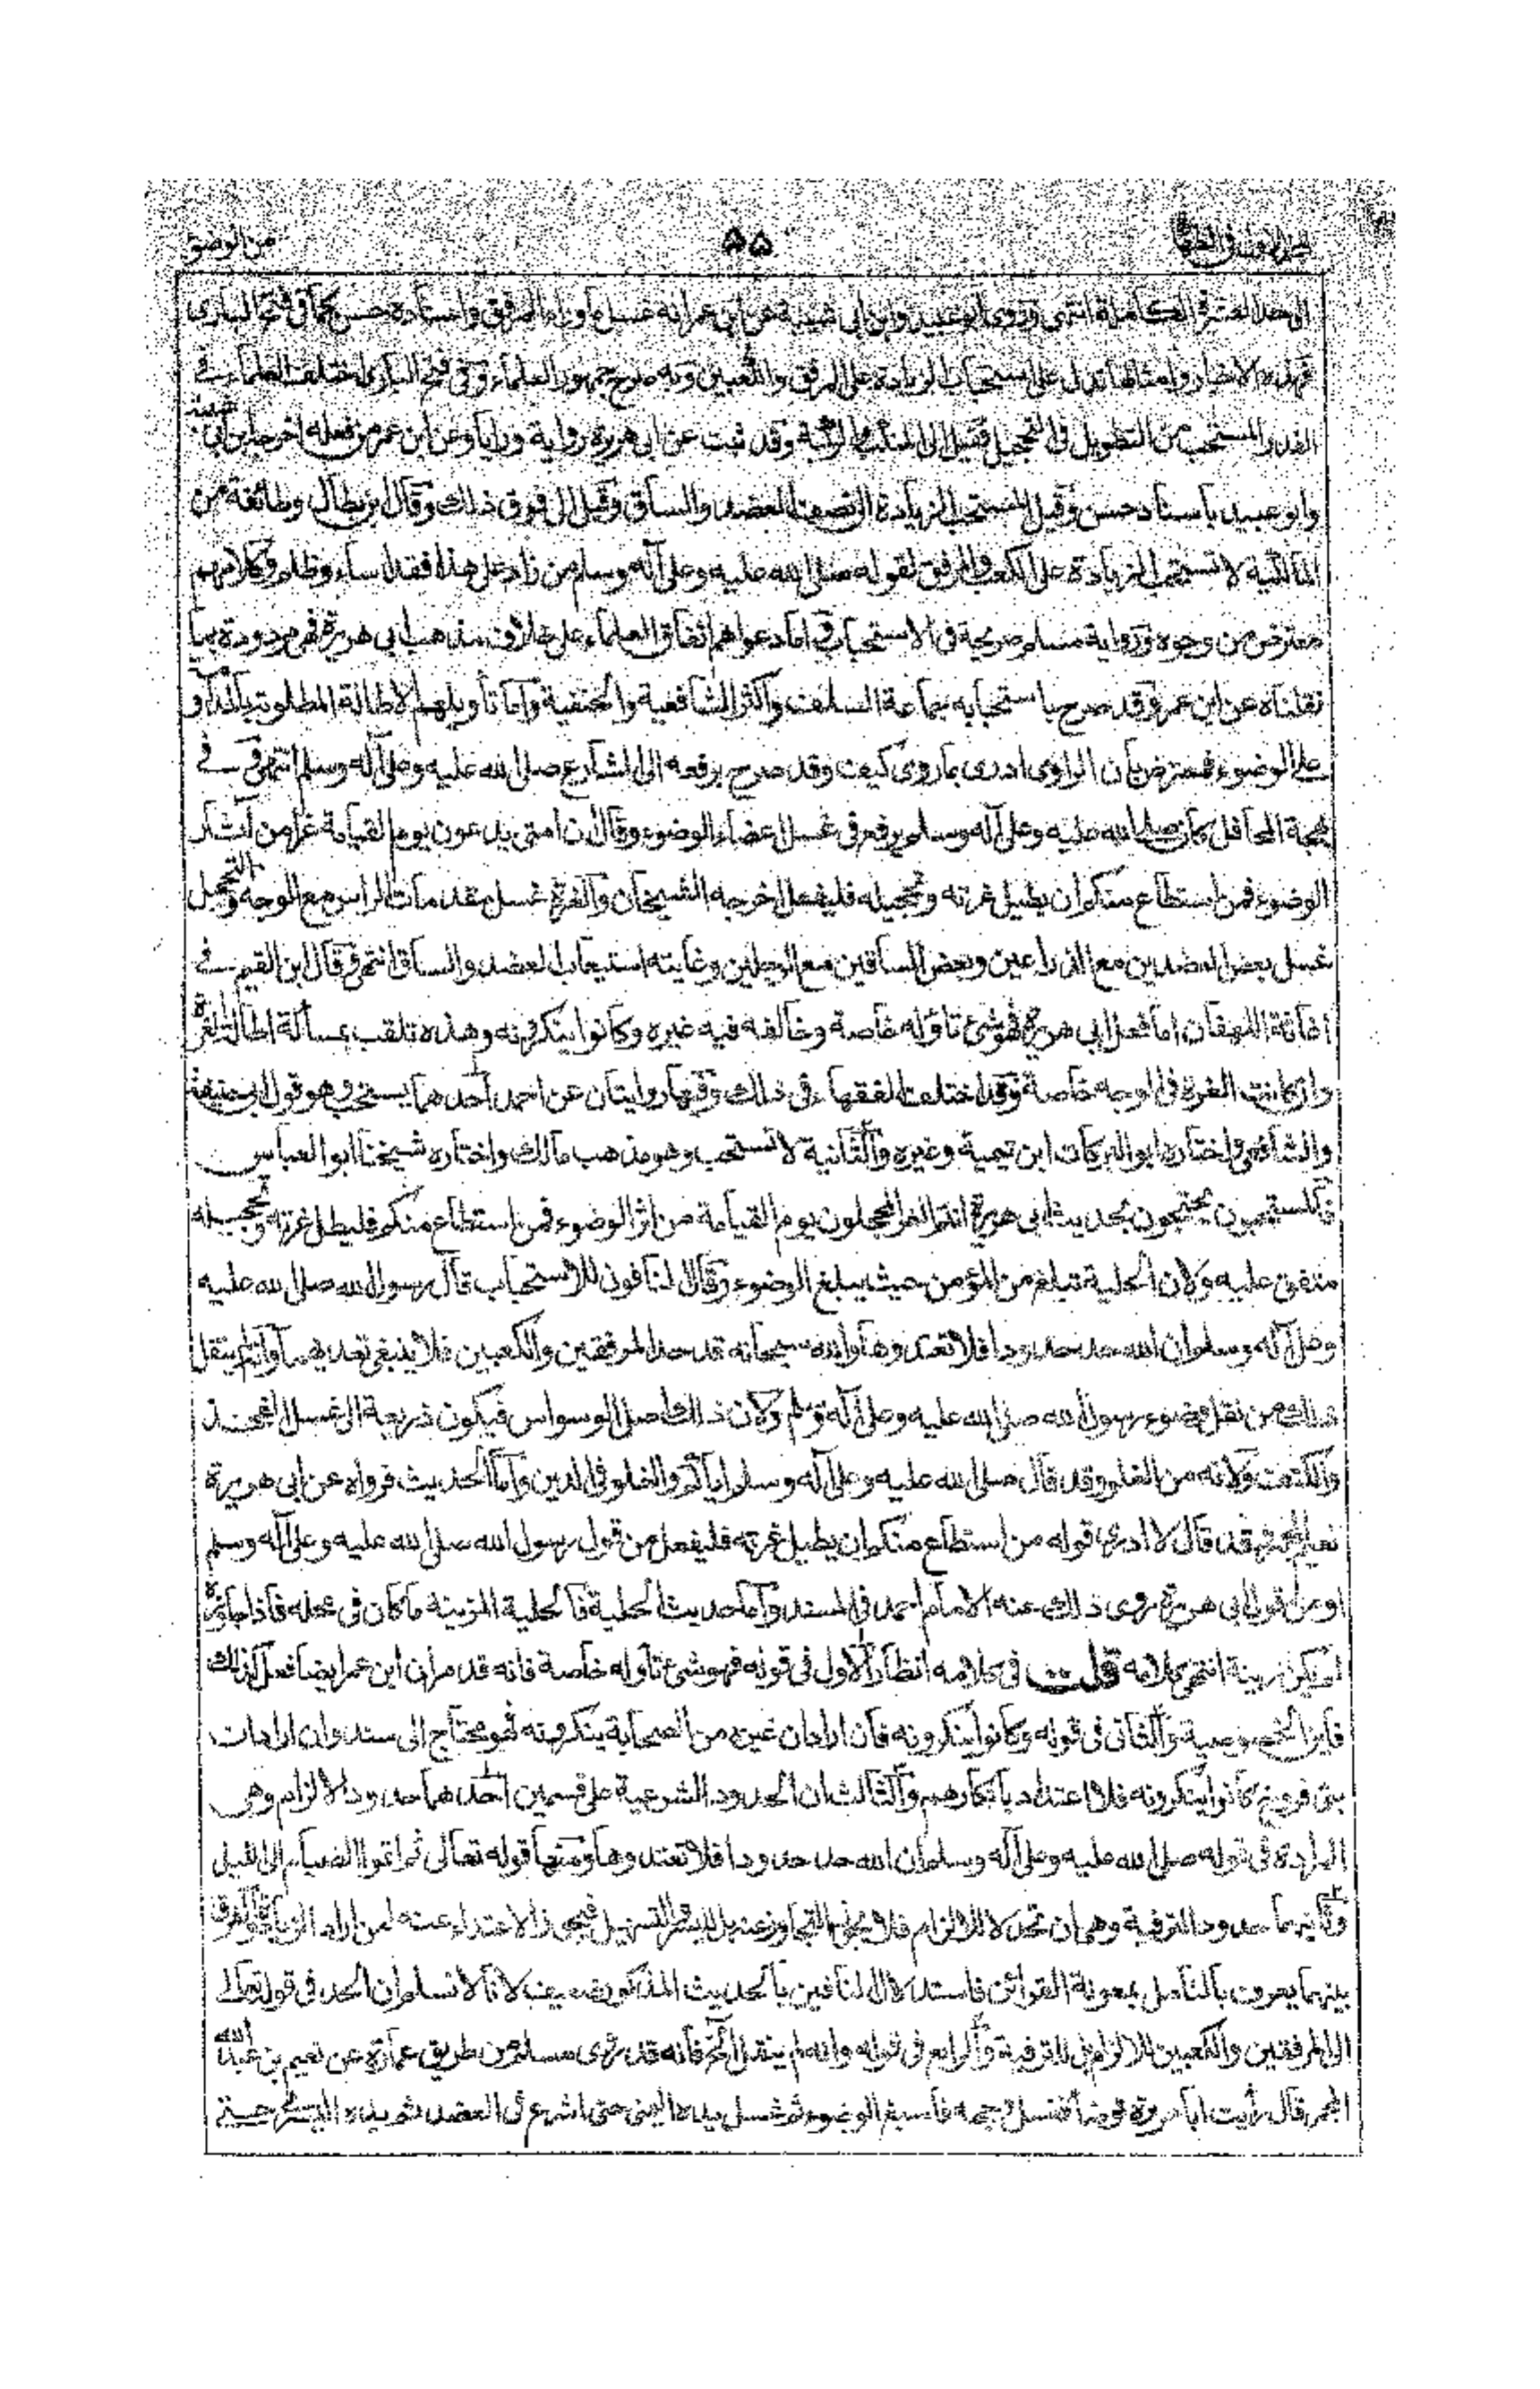 من الوضوء
۵۵
الى حد الغسل في الكاملة انتهى وروى ابو عبيد وابن ابى شيبة عن ابن عمر انه غسل ما وراء المرفق واسناده حسن كما في فتح البارى
فهذه الاخبار وامثالها تدل على استحباب الزيادة على المرفق والكعبين وبه صرح جمهور العلماء وفى فتح البارى اختلف العلماء فى
القدر المستحب من التطويل فى التحجيل فقيل الى المنكب والركبة وقد ثبت عن ابى هريرة رواية ورايا وعن ابن عمر من فعله اخرجه ابن ابى شيبة
وابو عبيد باسناد حسن وقيل المستحب الزيادة الى نصف العضد والساق وقيل الى فوق ذلك وقال ابن بطال وطائفة من
المالكية لا تستحب الزيادة على الكعب والمرفق لقوله صلى الله عليه وعلى آله وسلم من زاد على هذا فقد اساء وظلم وكلامهم
معترض من وجوه ورواية مسلم صريحة فى الاستحباب واما دعواهم اتفاق العلماء على خلاف مذهب ابى هريرة فهى مردودة بما
نقلناه عن ابن عمر وقد صرح باستحبابه جماعة السلف واكثر الشافعية والحنفية واما تأويلهم الاطالة المطلوبة بالمداومة
على الوضوء فمعترض بأن الراوى ادرى بما روى كيف وقد صرح برفعه الى الشارع صلى الله عليه وعلى آله وسلم انتهى وفى
بهجة المحافل كان صلى الله عليه وعلى آله وسلم يرفع فى غسل اعضاء الوضوء وقال ان امتى يدعون يوم القيامة غرا من آثار
الوضوء فمن استطاع منكم ان يطيل غرته وتحجيله فليفعل اخرجه الشيخان والغرة غسل مقدمات الراس مع الوجه والتحجيل
غسل بعض العضدين مع الذراعين وبعض الساقين مع الرجلين وغايته استيعاب العضد والساق انتهى وقال ابن القيم فى
اغاثة اللهفان اما فعل ابى هريرة فهو شئ تاوله خاصة وخالفه فيه غيره وكانوا ينكرونه وهذه تلقب بمسألة اطالة الغرة
وان كانت الغرة فى الوجه خاصة وقد اختلف الفقهاء فى ذلك وفيها روايتان عن احمد احدهما يستحب وهو قول ابى حنيفة
والشافعى واختاره ابو البركات ابن تيمية وغيره والثانية لا تستحب وهو مذهب مالك واختاره شيخنا ابو العباس
فالمستحبون يحتجون بحديث ابى هريرة انتم الغر المحجلون يوم القيامة من اثر الوضوء فمن استطاع منكم فليطل غرته وتحجيله
متفق عليه ولان الحلية تبلغ من المؤمن حيث يبلغ الوضوء وقال النافون للاستحباب قال رسول الله صلى الله عليه
وعلى آله وسلم ان الله حد حدودا فلا تعتدوها والله سبحانه قد حد المرفقين والكعبين فلا ينبغى تعديهما ولم ينقل
ذلك من نقل وضوء رسول الله صلى الله عليه وعلى آله وسلم ولان ذلك اصل الوسواس فيكون ذريعة الى غسل الفخذ
والكتف ولانه من الغلو وقد قال صلى الله عليه وعلى آله وسلم اياكم والغلو فى الدين واما الحديث فرواه عن ابى هريرة
نعيم المجمر وقد قال لا ادرى قوله من استطاع منكم ان يطيل غرته فليفعل من قول رسول الله صلى الله عليه وعلى آله وسلم
او من قول ابى هريرة روى ذلك عنه الامام احمد فى المسند واما حديث الحلية فالحلية المزينة ما كان فى محله فاذا جاوزه
لم يكن زينة انتهى كلامه قلت فى كلامه انظار الاول فى قوله فهو شئ تاوله خاصة فانه قد مر ان ابن عمر ايضا فعل كذلك
فاين الخصوصية والثانى فى قوله وكانوا ينكرونه فان اراد ان غيره من الصحابة ينكرونه فهو محتاج الى سند وان اراد ان
بنى فروخ كانوا ينكرونه فلا اعتداد بانكارهم والثالث ان الحدود الشرعية على قسمين احدهما حدود الالزام وهى
المرادة فى قوله صلى الله عليه وعلى آله وسلم ان الله حد حدودا فلا تعتدوها ومنها قوله تعالى ثم اتموا الصيام الى الليل
وثانيهما حدود الترفية وهى ان تحد لا للالزام فلا يحل التجاوز عنه بل لليسر والتسهيل فيجوز الاعتداء عنه لمن اراد الزيادة والفرق
بينهما يعرف بالتأمل بمعونة القرائن فاستدلال النافين بالحديث المذكور ضعيف لانا لا نسلم ان الحد فى قوله تعالى
الى المرفقين والكعبين للالزام بل للترفية والرابع فى قوله وانه لم ينقل الخ فانه قد روى مسلم من طريق عمارة عن نعيم بن عبد الله
المجمر قال رأيت ابا هريرة توضأ فغسل وجهه فاسبغ الوضوء ثم غسل يده اليمنى حتى اشرع فى العضد ثم يده اليسرى حتى